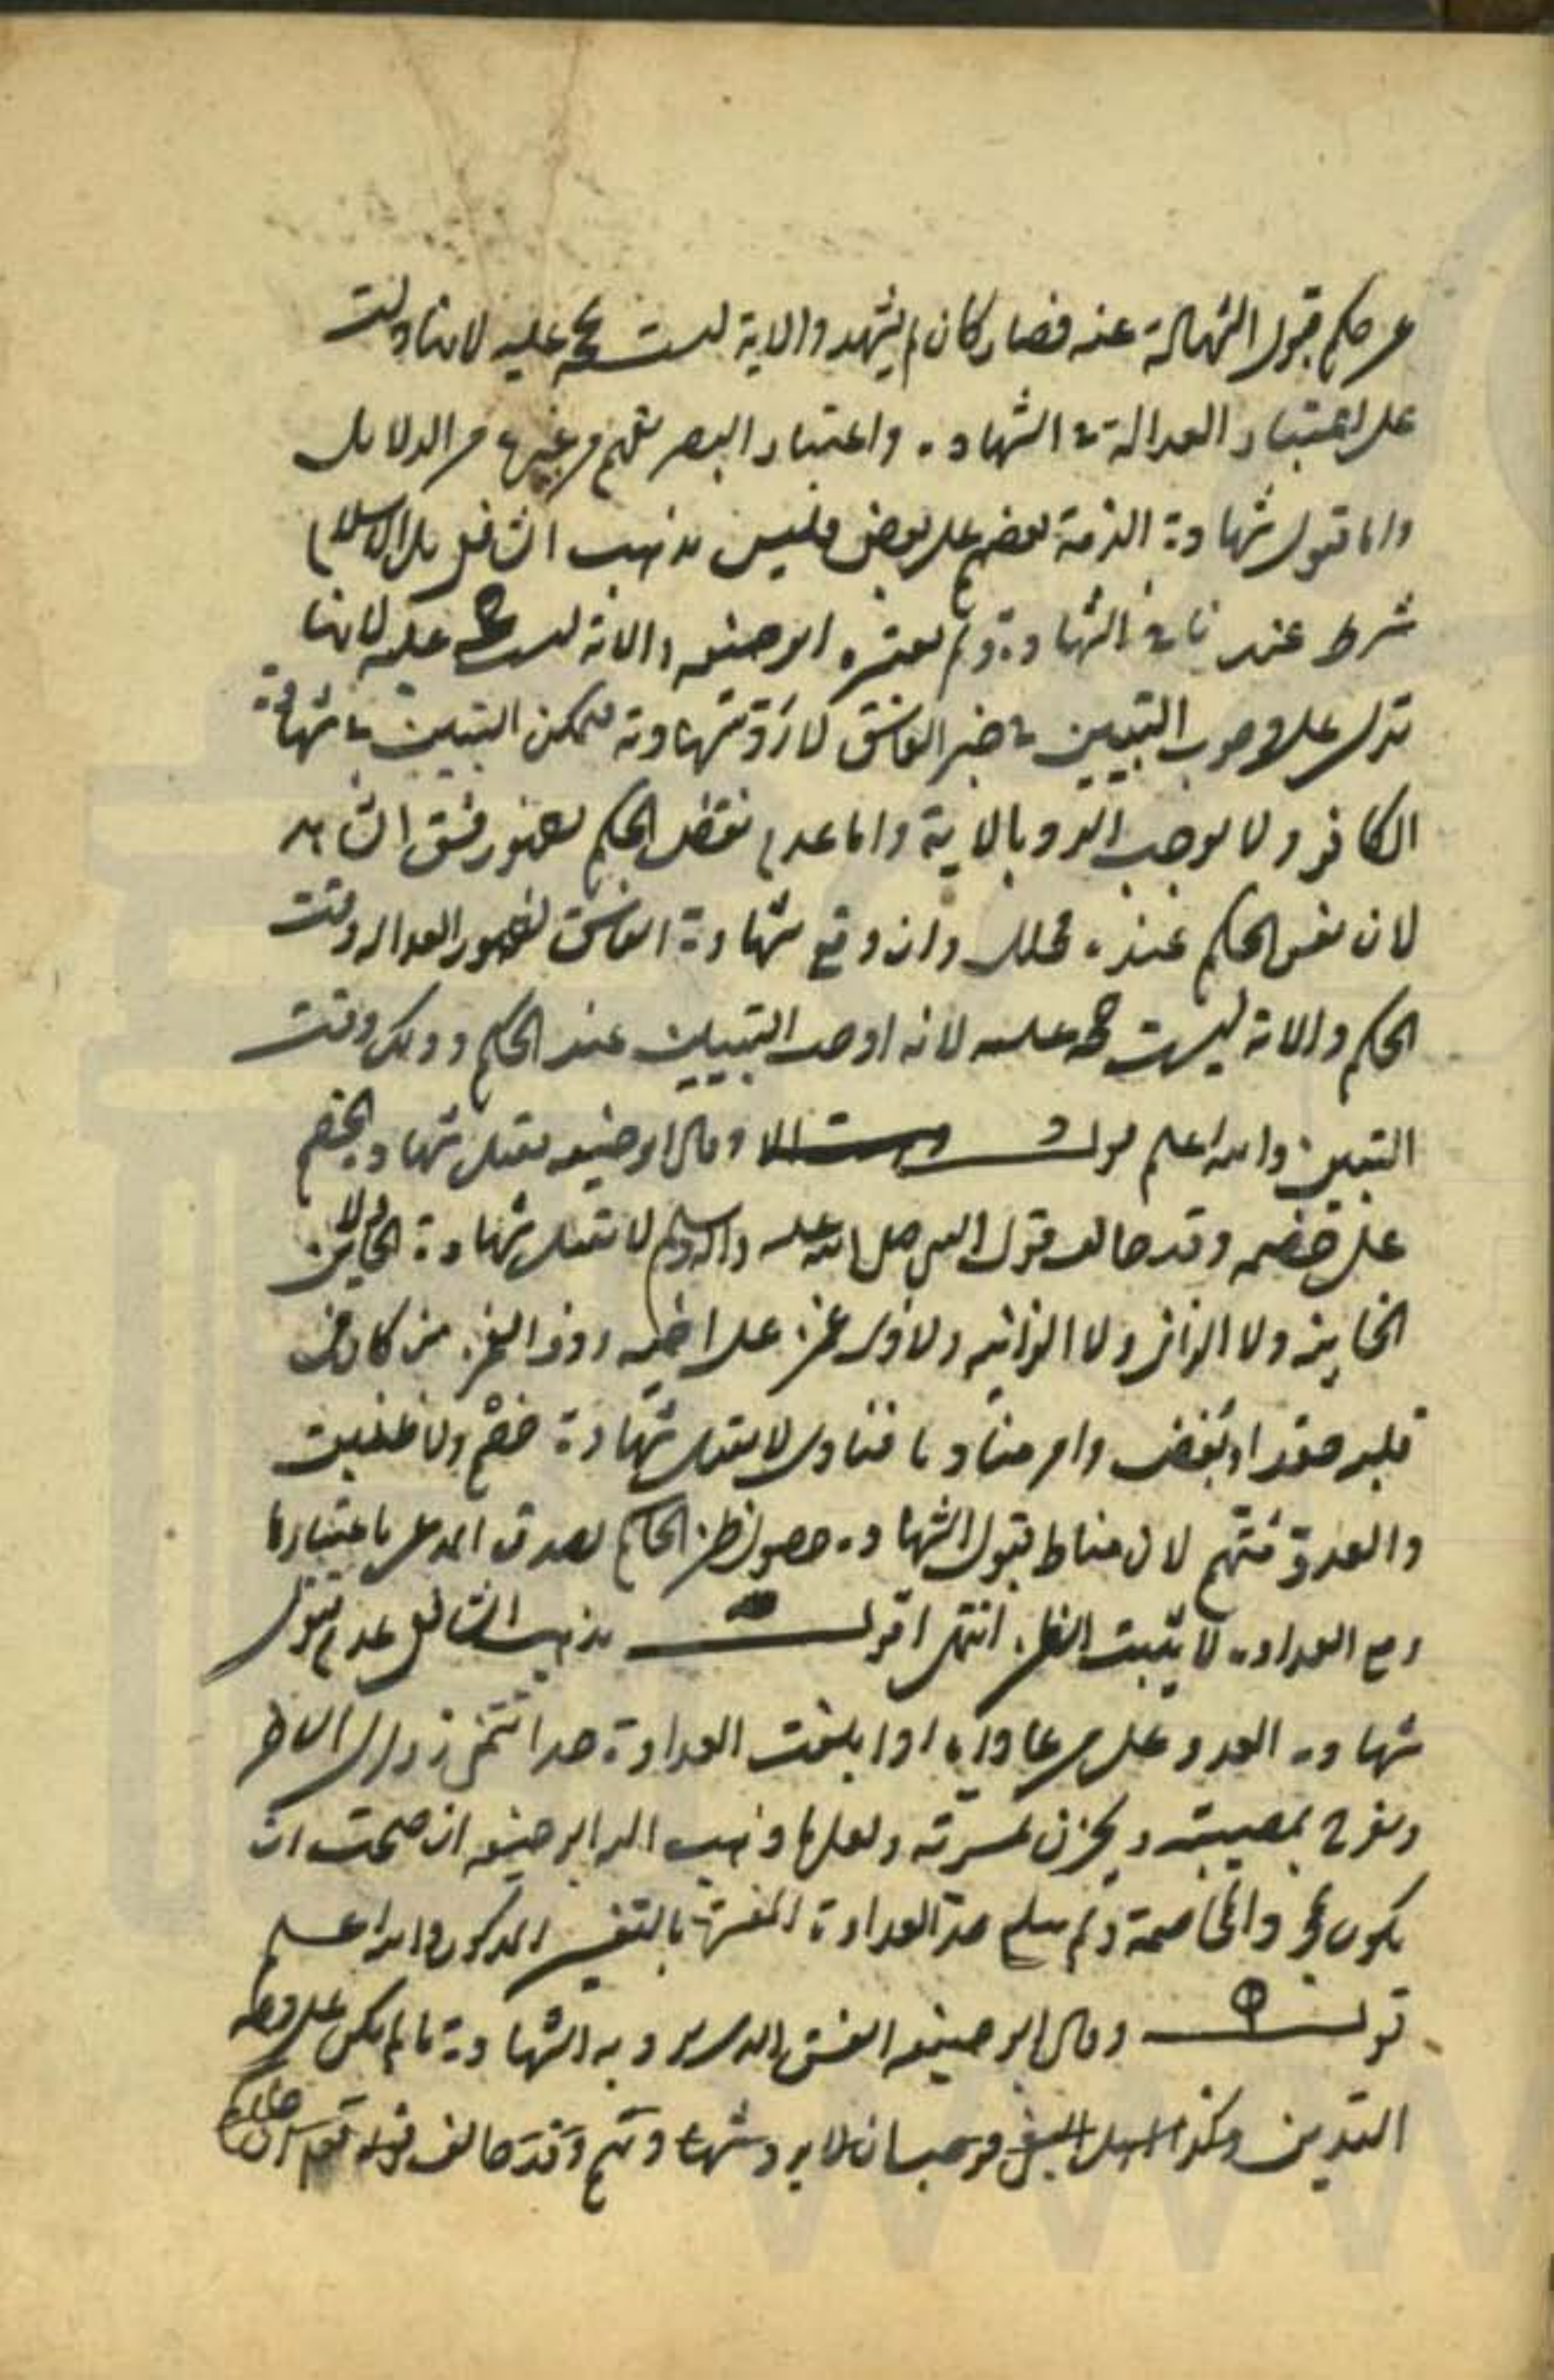 عن حكم قبول الشهادة عنه فصار كان لم يشهد والاية ليست بحجة عليه لانها دلت
على اعتبار العدالة في الشهادة واعتبار البصر يفهم من غيرها من الدلايل
واما قبول شهادة الذمة بعضهم على بعض فليس مذهب الشافعي بل الاسلام
شرط عند نا في الشهادة ولم يعتبره ابو حنيفه والاية ليست بحجة عليه لانها
تدل على وجوب التبيين في خبر الفاسق لا رد شهادته فيمكن التبيين في شهادة
الكافر ولا يوجب الرد بالاية واما عدم نقض الحكم لظهور فسق الشاهد
لان نفس الحكم عنده محلل وان وقع شهادة الفاسق لظهور العدالة وقت
الحكم والاية ليست حجة عليه لانه اوجب التبيين عند الحكم وذلك وقت
التبيين والله اعلم قوله وقال ابو حنيفه يقبل شهادة الخصم
على خصمه وقد خالف قول النبي صلى الله عليه واله وسلم لا تقبل شهادة الخاين ولا
الخاينة ولا الزاني ولا الزانية ولا ذي غمز على اخيه وذو الغمز من كان في
قلبه حقد او بغض وامر مناديا فنادى لا يقبل شهادة خصم ولا ظنين
والعدو متهم لان مناط قبول الشهادة حصول ظن الحاكم بصدق المدعي باعتبارها
ومع العداوة لا يثبت الظن انتهى اقول مذهب الشافعي عدم قبول
شهادة العدو على من عاداه اذا بلغت العداوة حدا يتمنى زوال
ويفرح بمصيبته ويحزن لمسرته ولعل ما ذهب اليه ابو حنيفه ان صحت ان
يكون مجرد المخاصمة ولم يبلغ حد العداوة المفسرة بالتفسير المذكور والله اعلم
قوله وقال ابو حنيفه الفسق الذي يرد به الشهادة ما لم يكن على وجه
التدين وكذا اهل البغي لا يرد شهادتهم وقد خالف قوله تعالى ان جاءكم